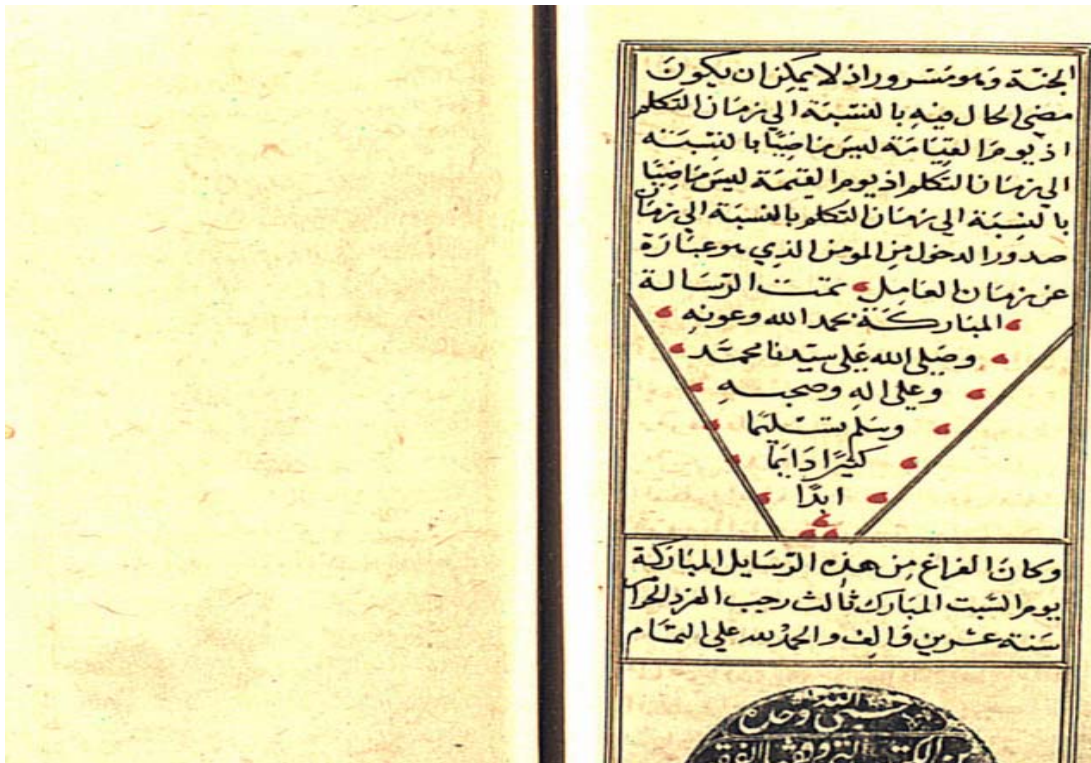 الجنة وهو مسرور اذ لا يمكن ان يكون
مضي الحال فيه بالنسبة الي زمان التكلم
اذ يوم القيامة ليس ماضيًا بالنسبة
الي زمان التكلم اذ يوم القيمة ليس ماضيًا
بالنسبة الي زمان التكلم بالنسبة الي زمان
صدور الدخول من المومن الذي هو عبارة
عن زمان العامل تمت الرسالة
المباركة بحمد الله وعونه
وصلي الله علي سيدنا محمد
وعلي اله وصحبه
وسلم تسليما
كثيرًا دايمًا
ابدًا
وكان الفراغ من هذه الرسايل المباركة
يوم السبت المبارك ثالث رجب الفرد الحرام
سنة عشرين والف والحمد لله علي التمام
حسبي الله وحده
من الكتب التي وقفها الفقير